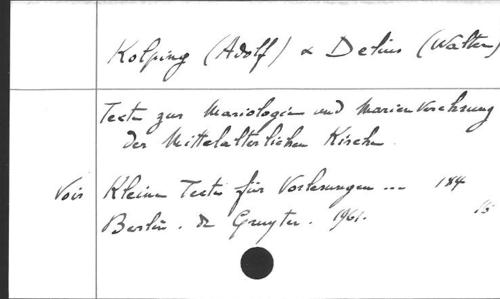 Kolping (Adolf) & Delius (Walter)
Texte zur Mariologie und Marienverehrung
der Mittelalterlichen Kirche.
Voir Kleine Texte für Vorlesungen ... 184
Berlin. de Gruyter. 1961. 15